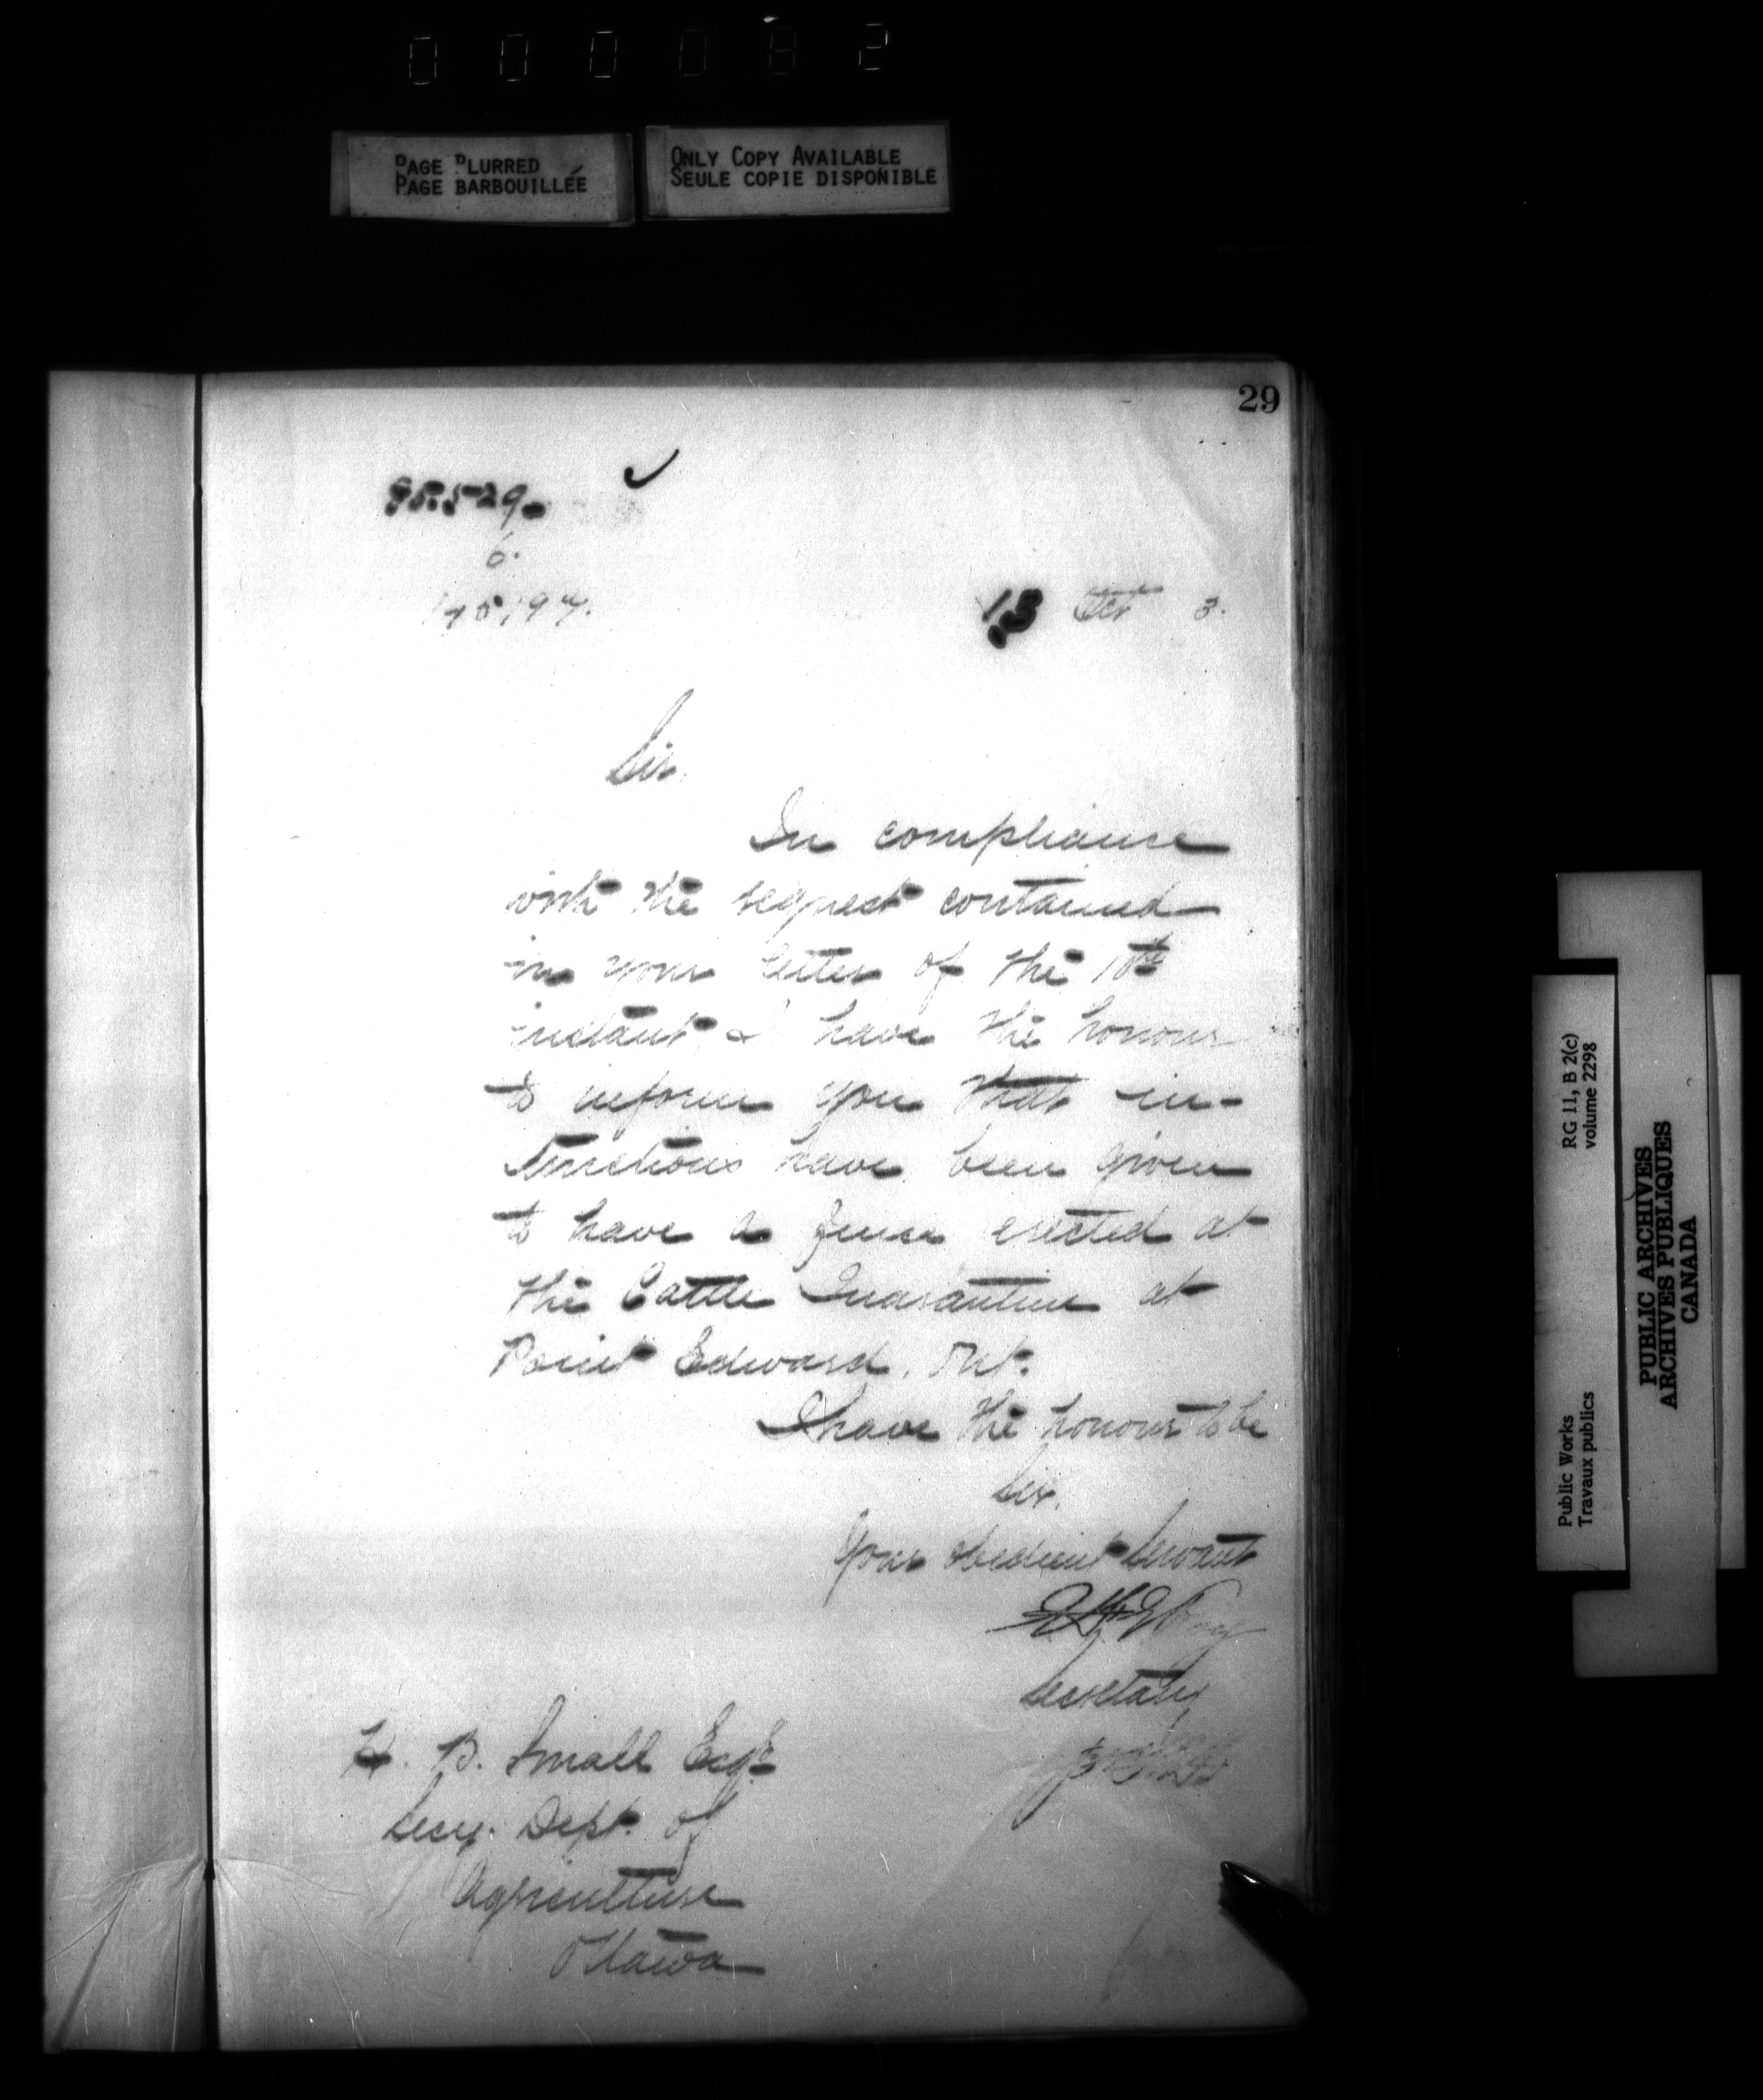 000082
PAGE BLURRED
PAGE BARBOUILLÉE
ONLY COPY AVAILABLE
SEULE COPIE DISPONIBLE
29
6.
13 Oct 3.
Sir,
In compliance
with the request contained
in your letter of the 10th
instant I have the honour
to inform you that in-
structions have been given
to have a fence erected at
the Cattle Quarantine at
Point Edward, Ont.
I have the honour to be
Sir,
Your obedient Servant
Secretary
H. B. Small Esqre
Secy. Dept. of
Agriculture
Ottawa
Public Works
Travaux publics
RG 11, B 2(c)
volume 2298
PUBLIC ARCHIVES
ARCHIVES PUBLIQUES
CANADA